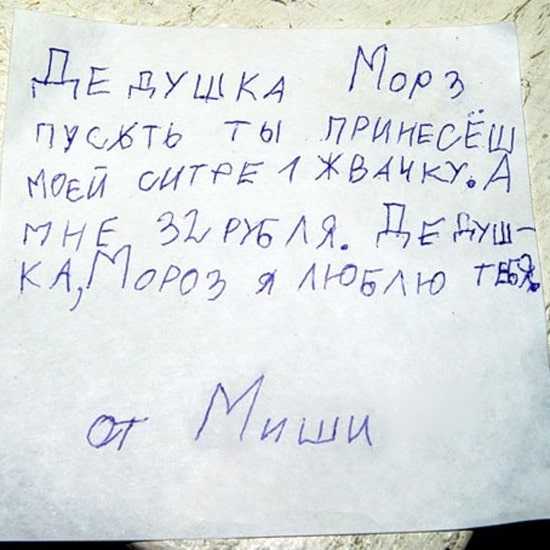 ДЕДУШКА МОРЗ
ПУСЯТЬ ТЫ ПРИНЕСЁШ
МОЕЙ СИТРЕ 1 ЖВАЧКУ. А
МНЕ 32 РУБЛЯ. ДЕДУШ-
КА, МОРОЗ Я ЛЮБЛЮ ТЕБЯ.
от Миши